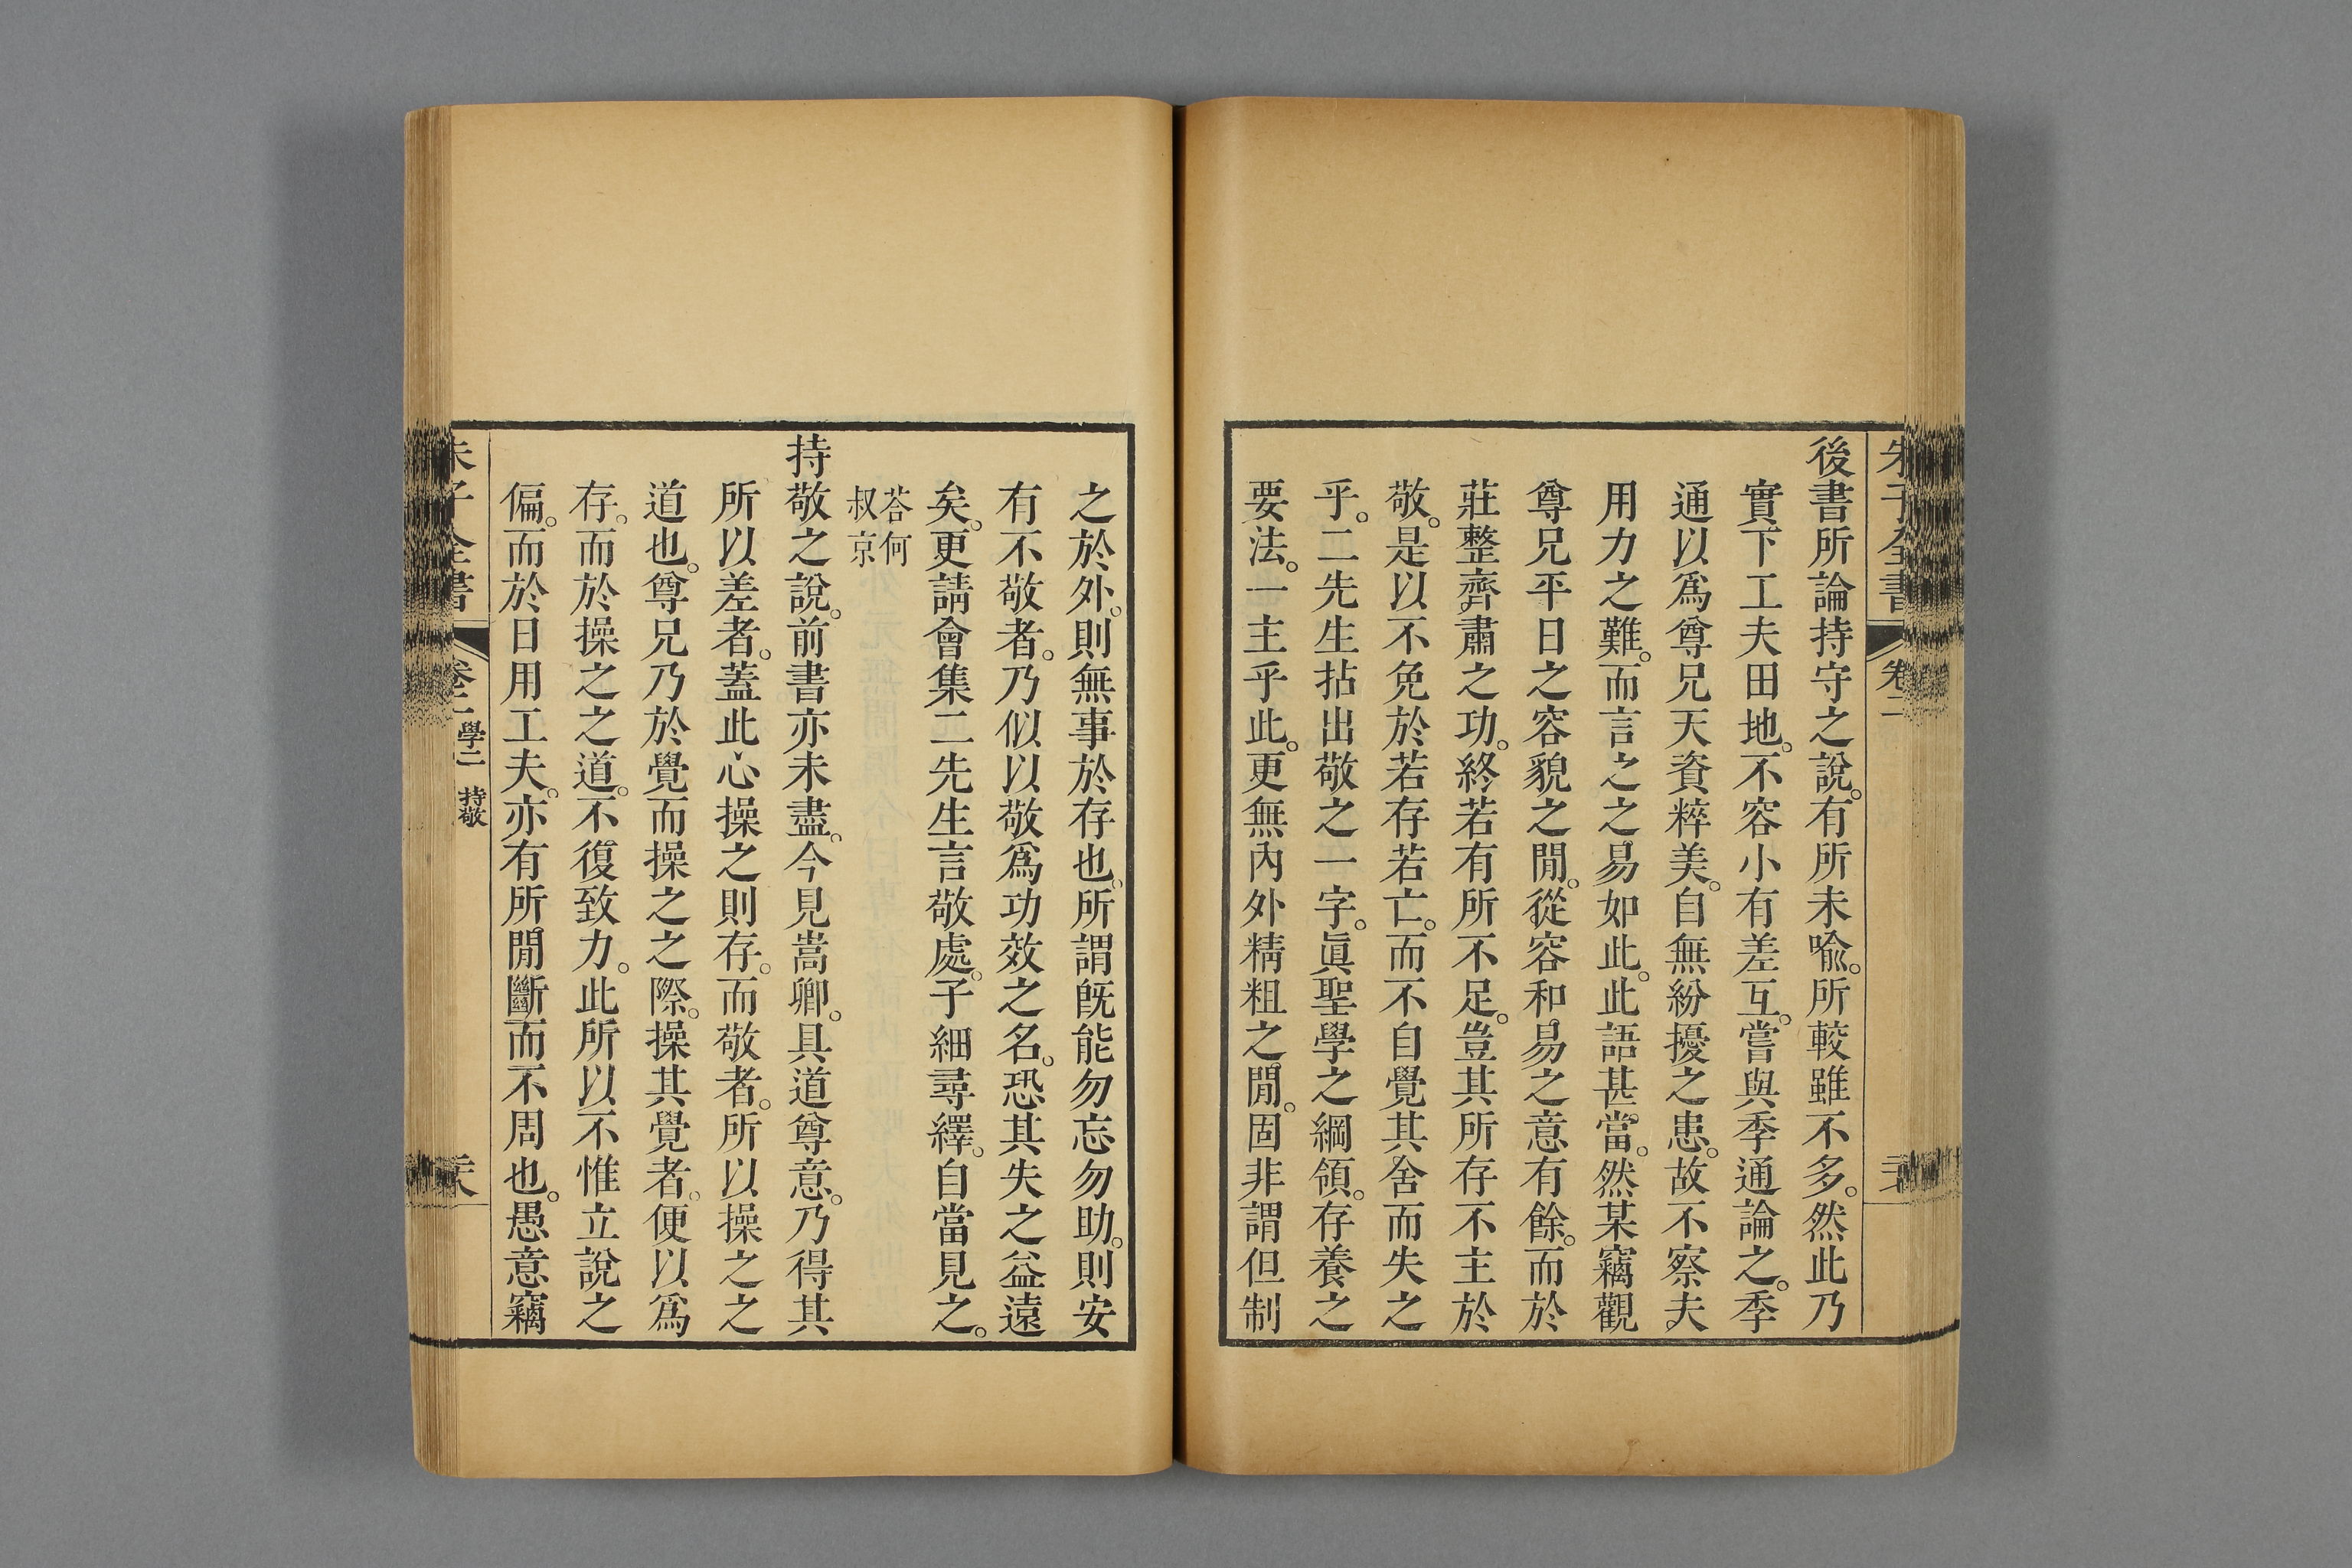 朱子全書 卷二
後書所論持守之說。有所未喻。所較雖不多。然此乃
實下工夫田地。不容小有差互。嘗與季通論之。季
通以爲尊兄天資粹美。自無紛擾之患。故不察夫
用力之難。而言之之易如此。此語甚當。然某竊觀
尊兄平日之容貌之閒。從容和易之意有餘。而於
莊整齊肅之功。終若有所不足。豈其所存不主於
敬。是以不免於若存若亡。而不自覺其舍而失之
乎。二先生拈出敬之一字。眞聖學之綱領。存養之
要法。一主乎此。更無內外精粗之閒。固非謂但制
之於外。則無事於存也。所謂旣能勿忘勿助。則安
有不敬者。乃似以敬爲功效之名。恐其失之益遠
矣。更請會集二先生言敬處。子細尋繹。自當見之。
荅何
叔京
持敬之說。前書亦未盡。今見嵩卿。具道尊意。乃得其
所以差者。蓋此心操之則存。而敬者。所以操之之
道也。尊兄乃於覺而操之之際。操其覺者。便以爲
存。而於操之之道。不復致力。此所以不惟立說之
偏。而於日用工夫。亦有所閒斷而不周也。愚意竊
朱子全書 卷二 學二 持敬